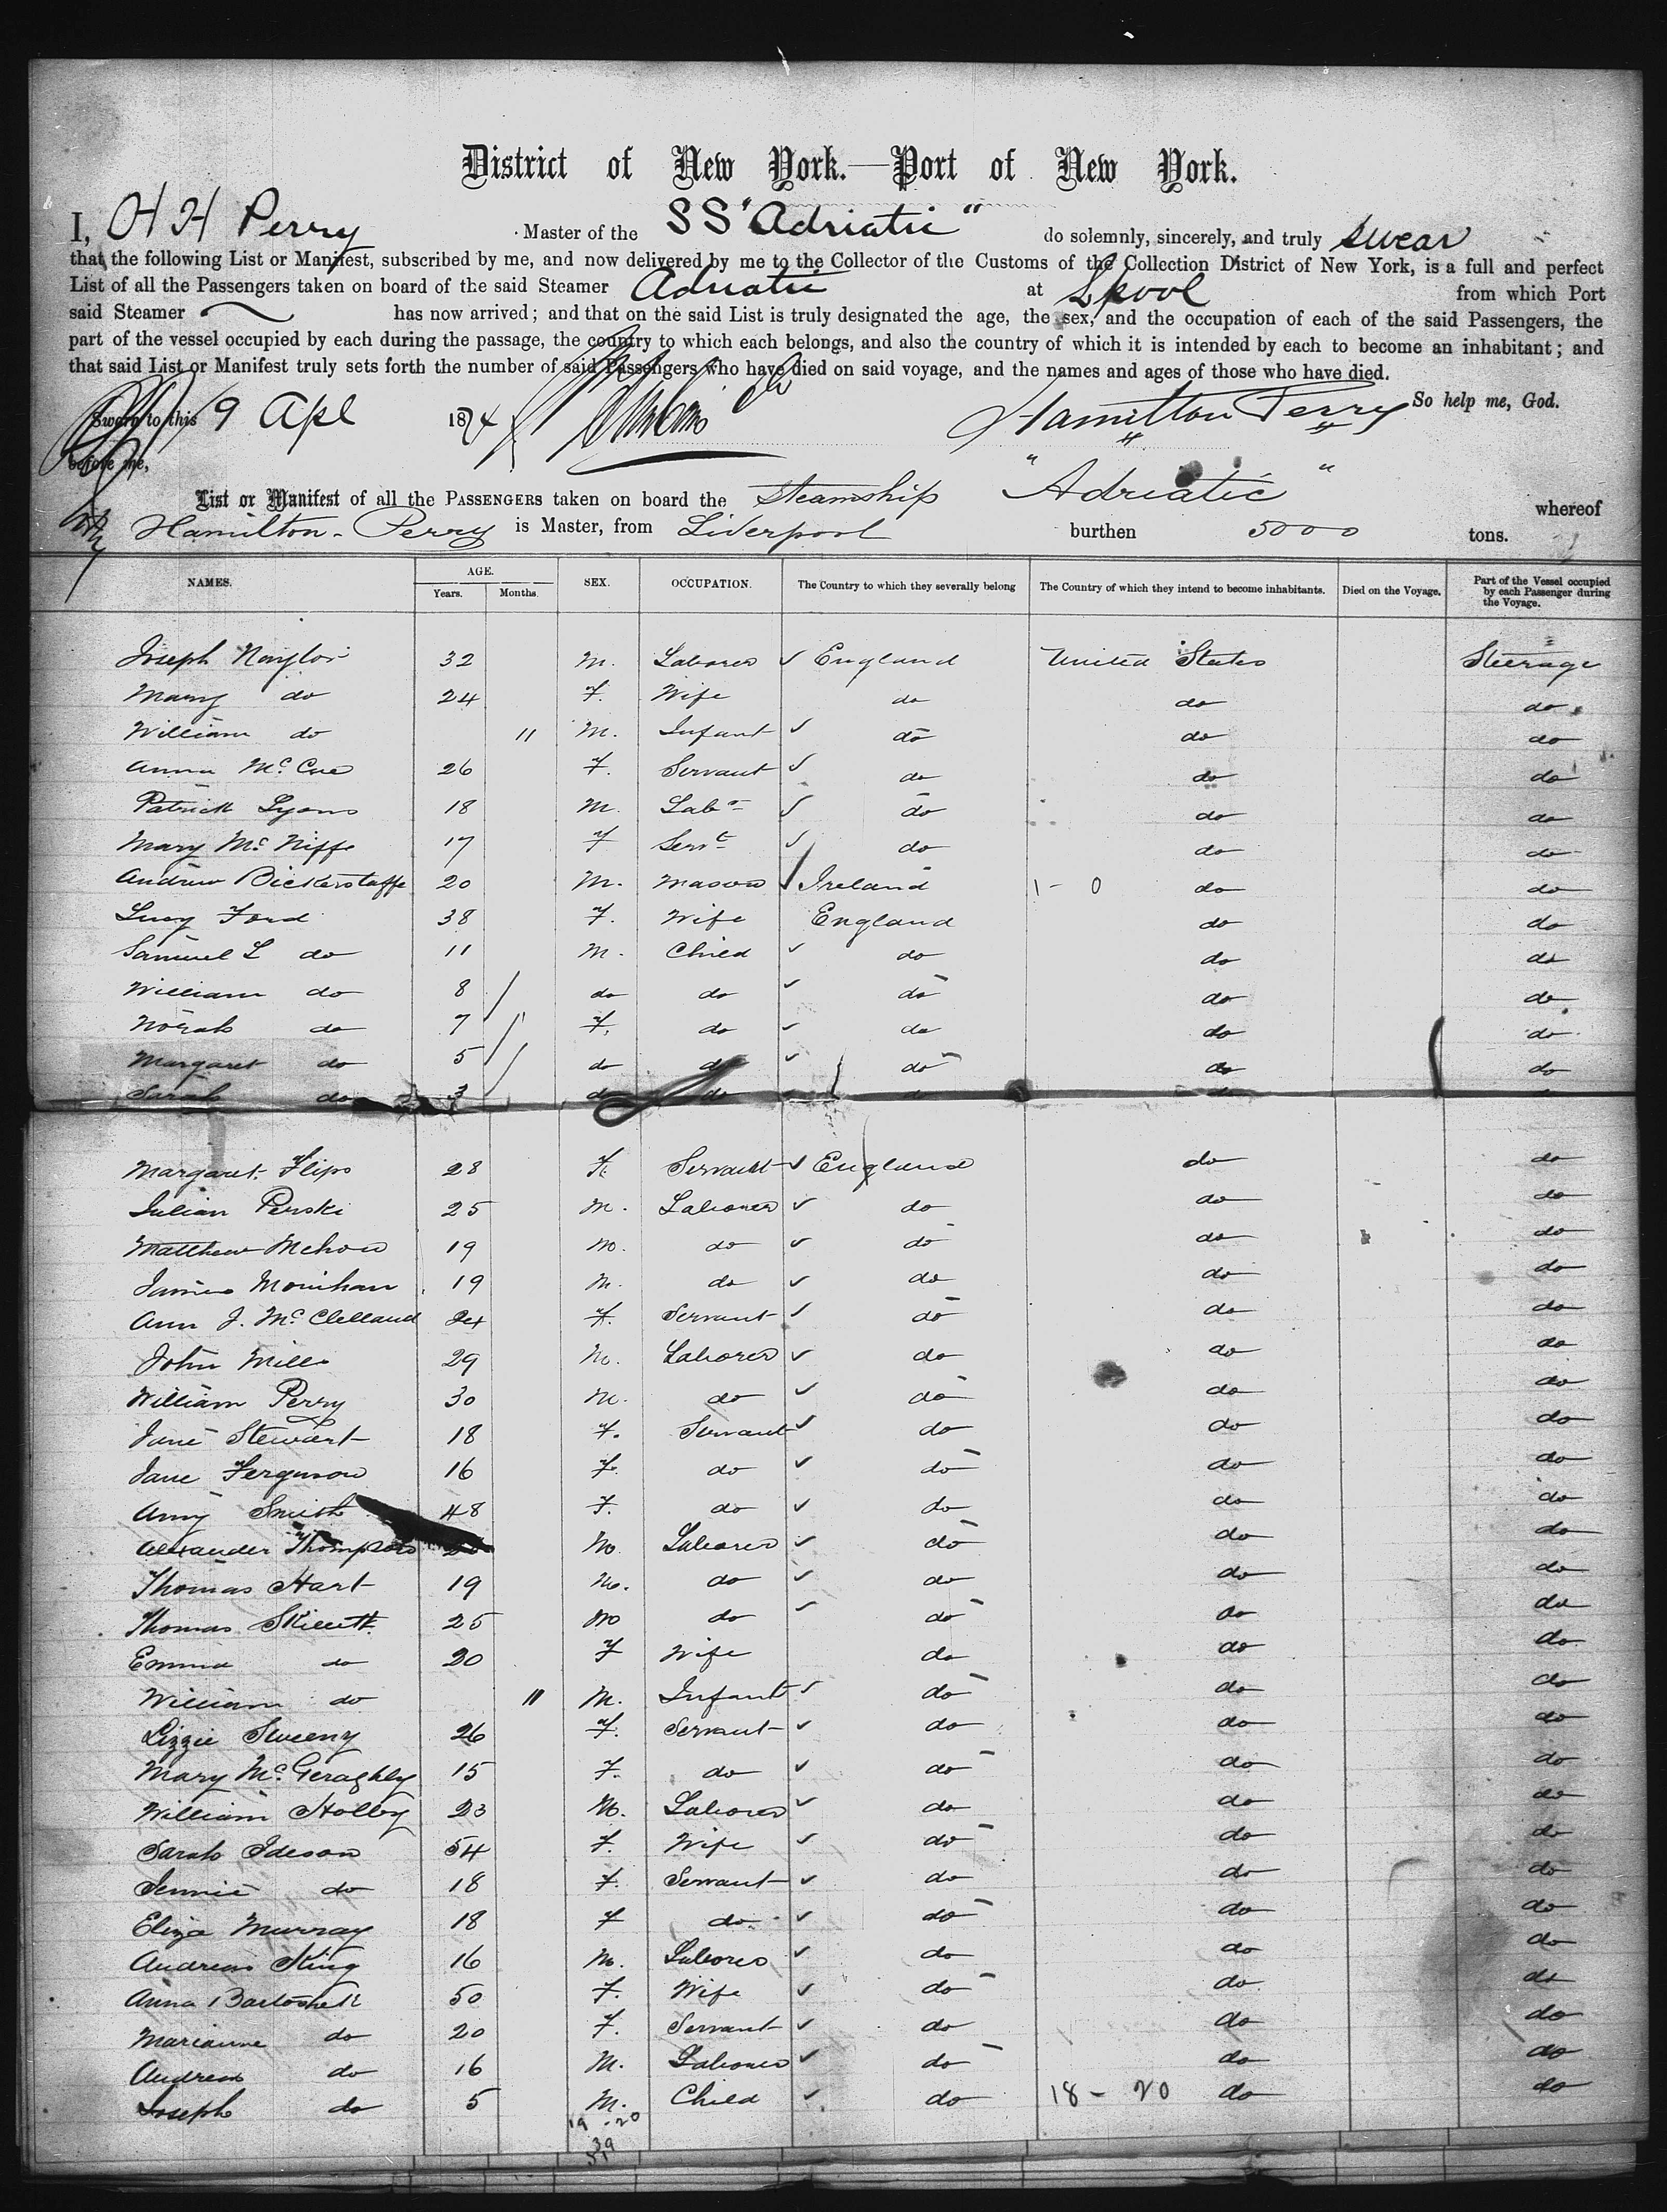 District of New York.—Port of New York.
I, H H Perry Master of the SS "Adriatic" do solemnly, sincerely, and truly swear
that the following List or Manifest, subscribed by me, and now delivered by me to the Collector of the Customs of the Collection District of New York, is a full and perfect
List of all the Passengers taken on board of the said Steamer Adriatic at Lpool from which Port
said Steamer has now arrived; and that on the said List is truly designated the age, the sex, and the occupation of each of the said Passengers, the
part of the vessel occupied by each during the passage, the country to which each belongs, and also the country of which it is intended by each to become an inhabitant; and
that said List or Manifest truly sets forth the number of said Passengers who have died on said voyage, and the names and ages of those who have died.
So help me, God.
Sworn to this 9 Apl 1874 Hamilton Perry
before me,
List or Manifest of all the PASSENGERS taken on board the Steamship "Adriatic" whereof
Hamilton Perry is Master, from Liverpool burthen 5000 tons.
NAMES. AGE. Years. Months. SEX. OCCUPATION. The Country to which they severally belong The Country of which they intend to become inhabitants. Died on the Voyage. Part of the Vessel occupied by each Passenger during the Voyage.
Joseph Naylor 32 M. Laborer England United States Steerage
Mary do 24 F. Wife do do do
William do 11 M. Infant do do do
Anna McCue 26 F. Servant do do do
Patrick Lyons 18 M. Labr do do do
Mary McNiffe 17 F Servt do do do
Andrew Bickerstaffe 20 M. Mason Ireland 1 - 0 do do
Lucy Ford 38 F. Wife England do do
Samuel L do 11 M. Child do do do
William do 8 do do do do do
Norah do 7 F. do do do do
Margaret do 5 do do do do do
Sarah do 3 do do do do
Margaret Flips 28 F. Servant England do do
Julian Perski 25 M. Laborer do do do
Matthew Mehow 19 M. do do do do
James Monihan 19 M. do do do do
Ann J. McClelland 24 F. Servant do do do
John Mills 29 M. Laborer do do do
William Perry 30 M. do do do do
Jane Stewart 18 F. Servant do do do
Jane Ferguson 16 F. do do do do
Amy Smith 48 F. do do do do
Alexander Thompson M. Laborer do do do
Thomas Hart 19 M. do do do do
Thomas Skillett 25 M do do do do
Emma do 20 F Wife do do do
William do 11 M. Infant do do do
Lizzie Sweeny 26 F. Servant do do do
Mary McGeraghly 15 F. do do do do
William Holby 23 M. Laborer do do do
Sarah Ideson 54 F. Wife do do do
Jennie do 18 F. Servant do do do
Eliza Murray 18 F do do do do
Andreas King 16 M. Laborer do do do
Anna Bartoshek 50 F. Wife do do do
Marianne do 20 F. Servant do do do
Andreas do 16 M. Laborer do do do
Joseph do 5 M. Child do 18 - 20 do do
19 - 20
39